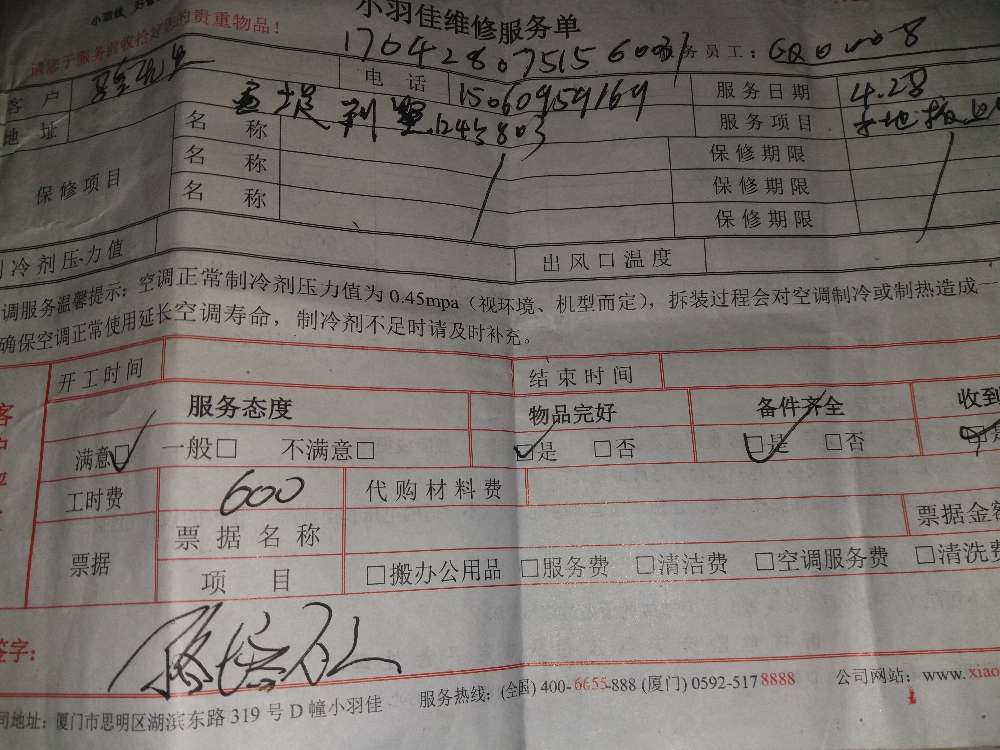 小羽佳维修服务单
请您于服务前收拾好您的贵重物品！
务员工：
客 户 电 话 15060959169 服务日期 4.28
地 址 服务项目
保修项目 名 称 保修期限
名 称 保修期限
名 称 保修期限
冷剂压力值 出风口温度
调服务温馨提示：空调正常制冷剂压力值为0.45mpa（视环境、机型而定），拆装过程会对空调制冷或制热造成一
确保空调正常使用延长空调寿命，制冷剂不足时请及时补充。
开工时间 结束时间
服务态度 物品完好 备件齐全 收到
满意□ 一般□ 不满意□ □是 □否 □是 □否 □是
工时费 600 代购材料费
票据 票据名称 票据金额
项 目 □搬办公用品 □服务费 □清洁费 □空调服务费 □清洗费
签字：
司地址：厦门市思明区湖滨东路319号D幢小羽佳 服务热线：(全国) 400-6655-888 (厦门) 0592-5178888 公司网站：www.xiao